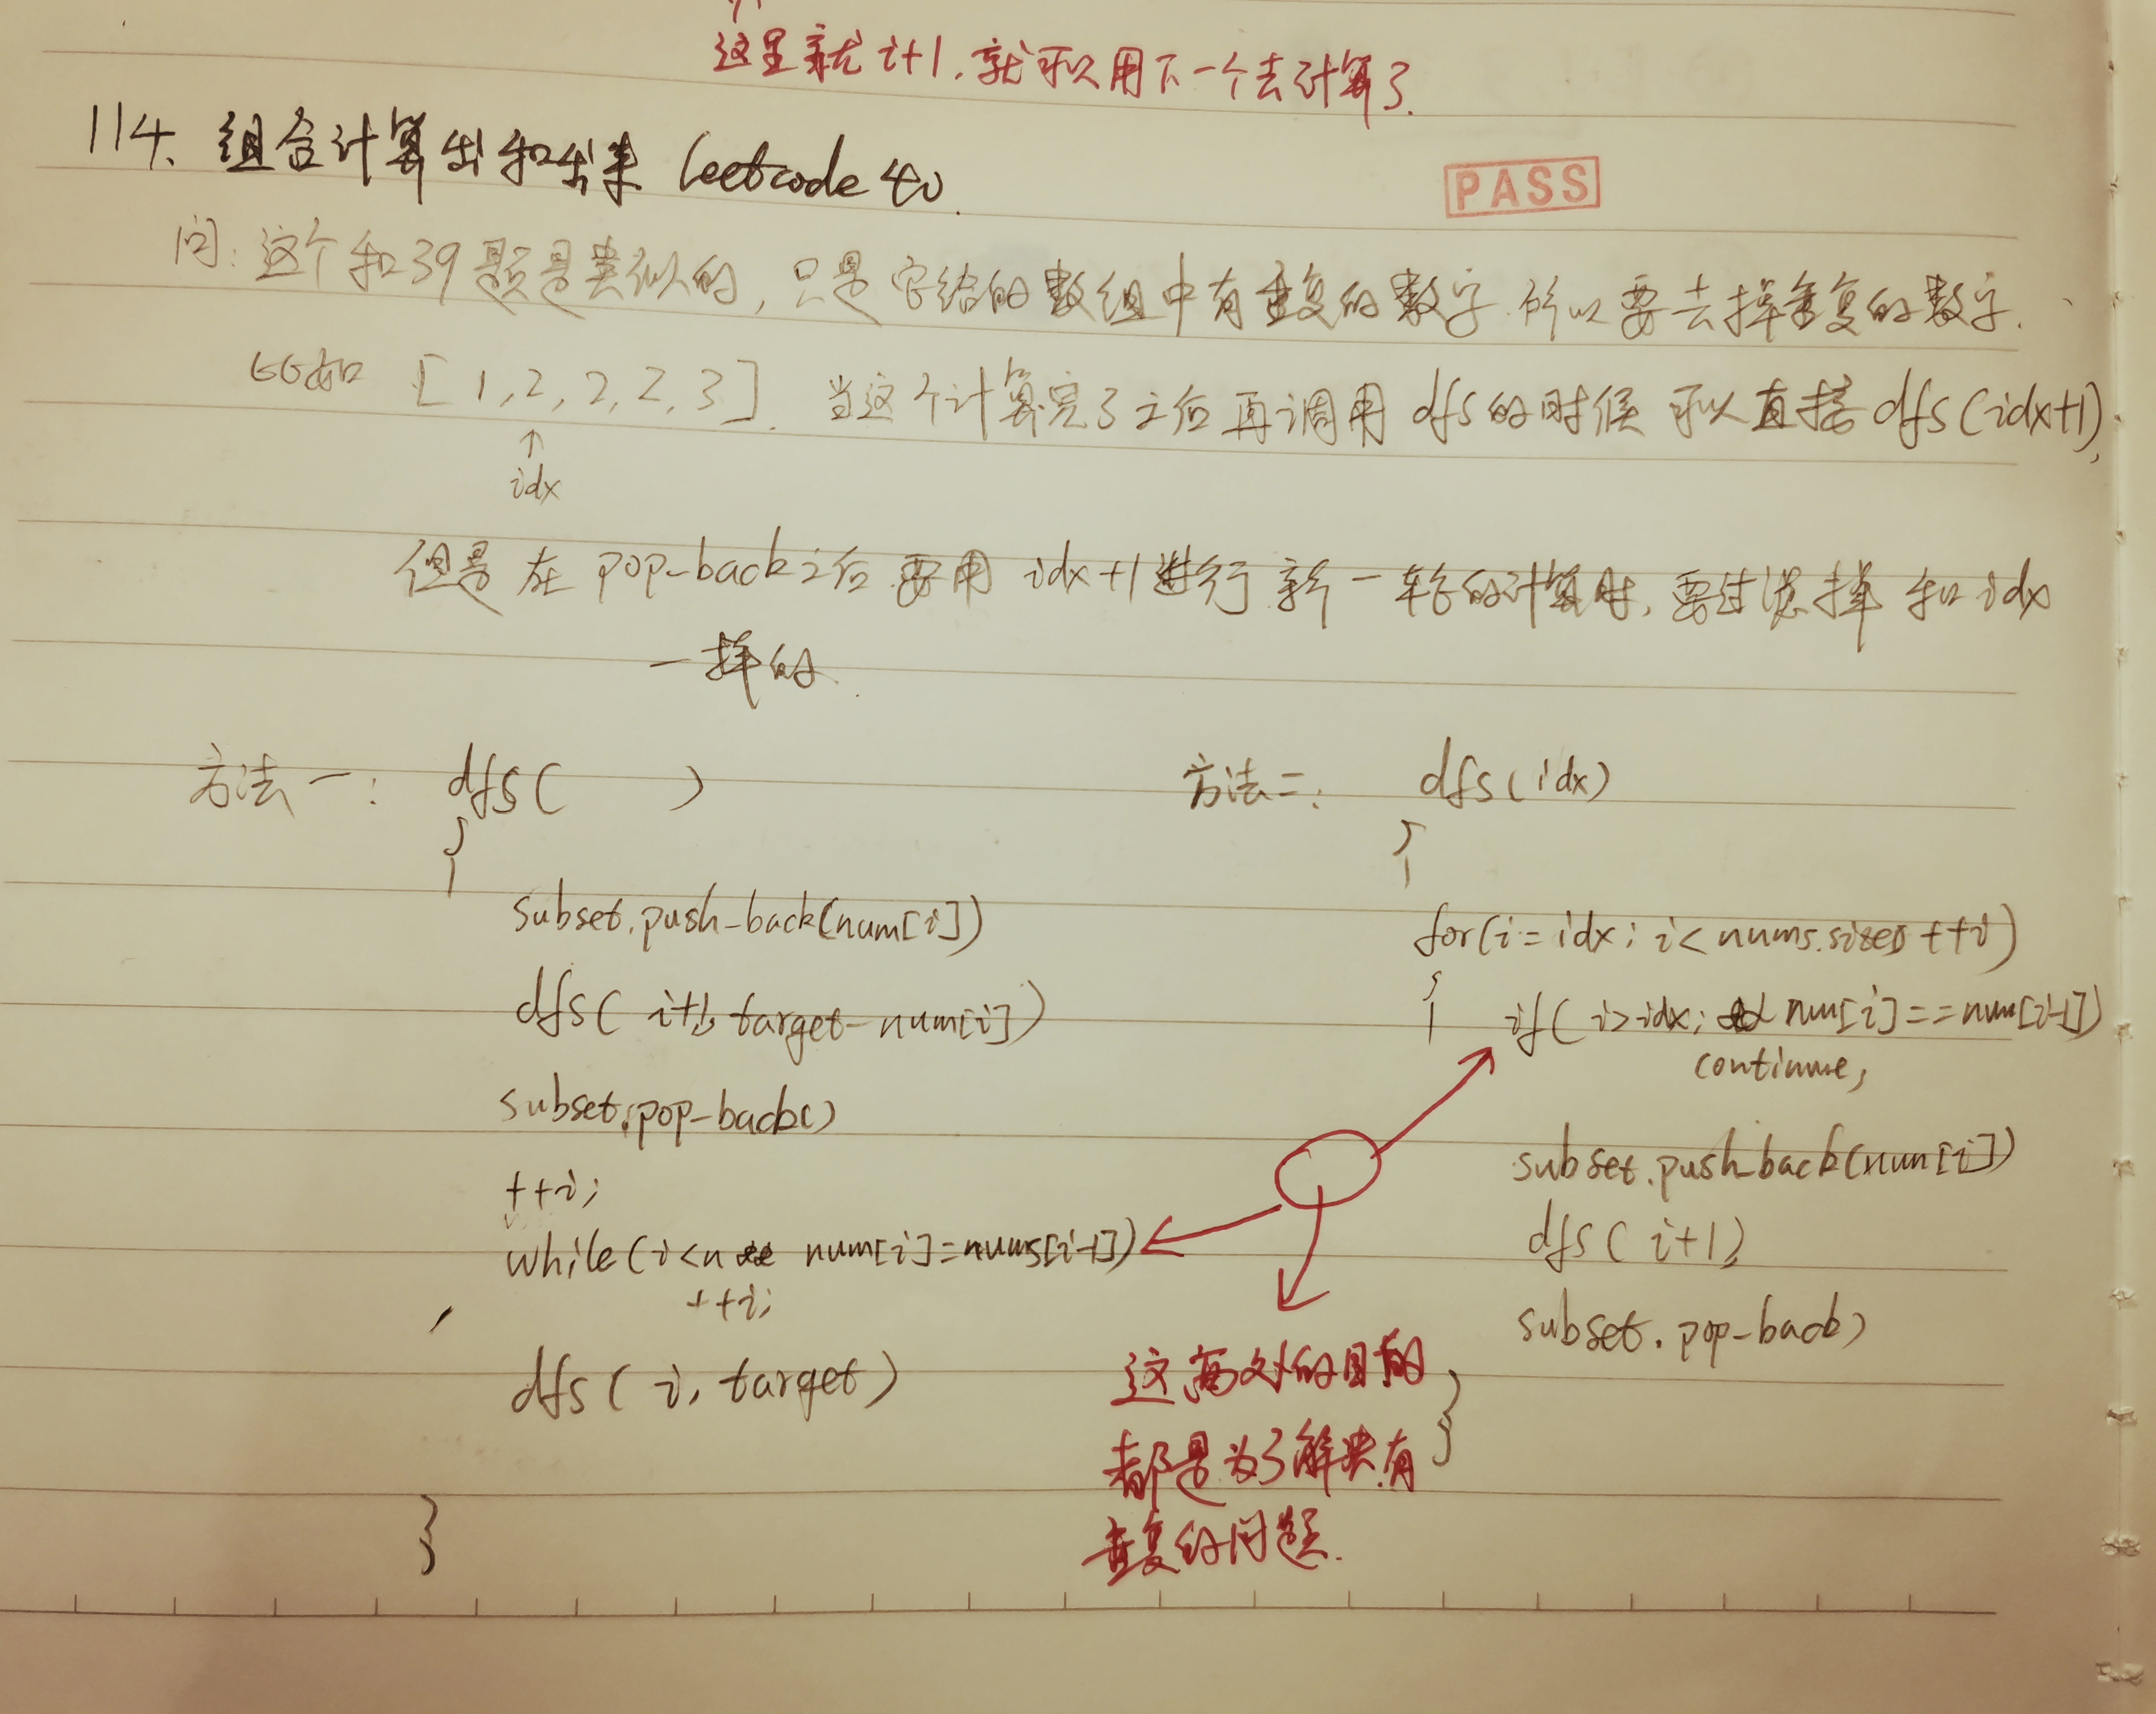 这里就i+1,就可以用下一个去计算了.
114、组合计算出和出来 leetcode 40.
PASS
问:这个和39题是类似的,只是它给的数组中有重复的数字.所以要去掉重复的数字.
比如 [1,2,2,2,3]. 当这个计算完了之后再调用dfs的时候可以直接dfs(idx+1),
↑
idx
但是在pop-back之后要用idx+1进行新一轮的计算时,要过滤掉和idx
一样的.
方法一: dfs( )
{
subset.push-back(num[i])
dfs( i+1, target-num[i])
subset.pop-back()
++i;
while(i<n && num[i]=nums[i-1])
++i;
dfs(i, target)
}
方法二: dfs(idx)
{
for(i=idx; i<nums.size() ++i)
{ if( i>idx; && num[i]==num[i-1])
continue;
subset.push-back(num[i])
dfs( i+1)
subset.pop-back)
}
}
这两处的目的
都是为了解决有
重复的问题.